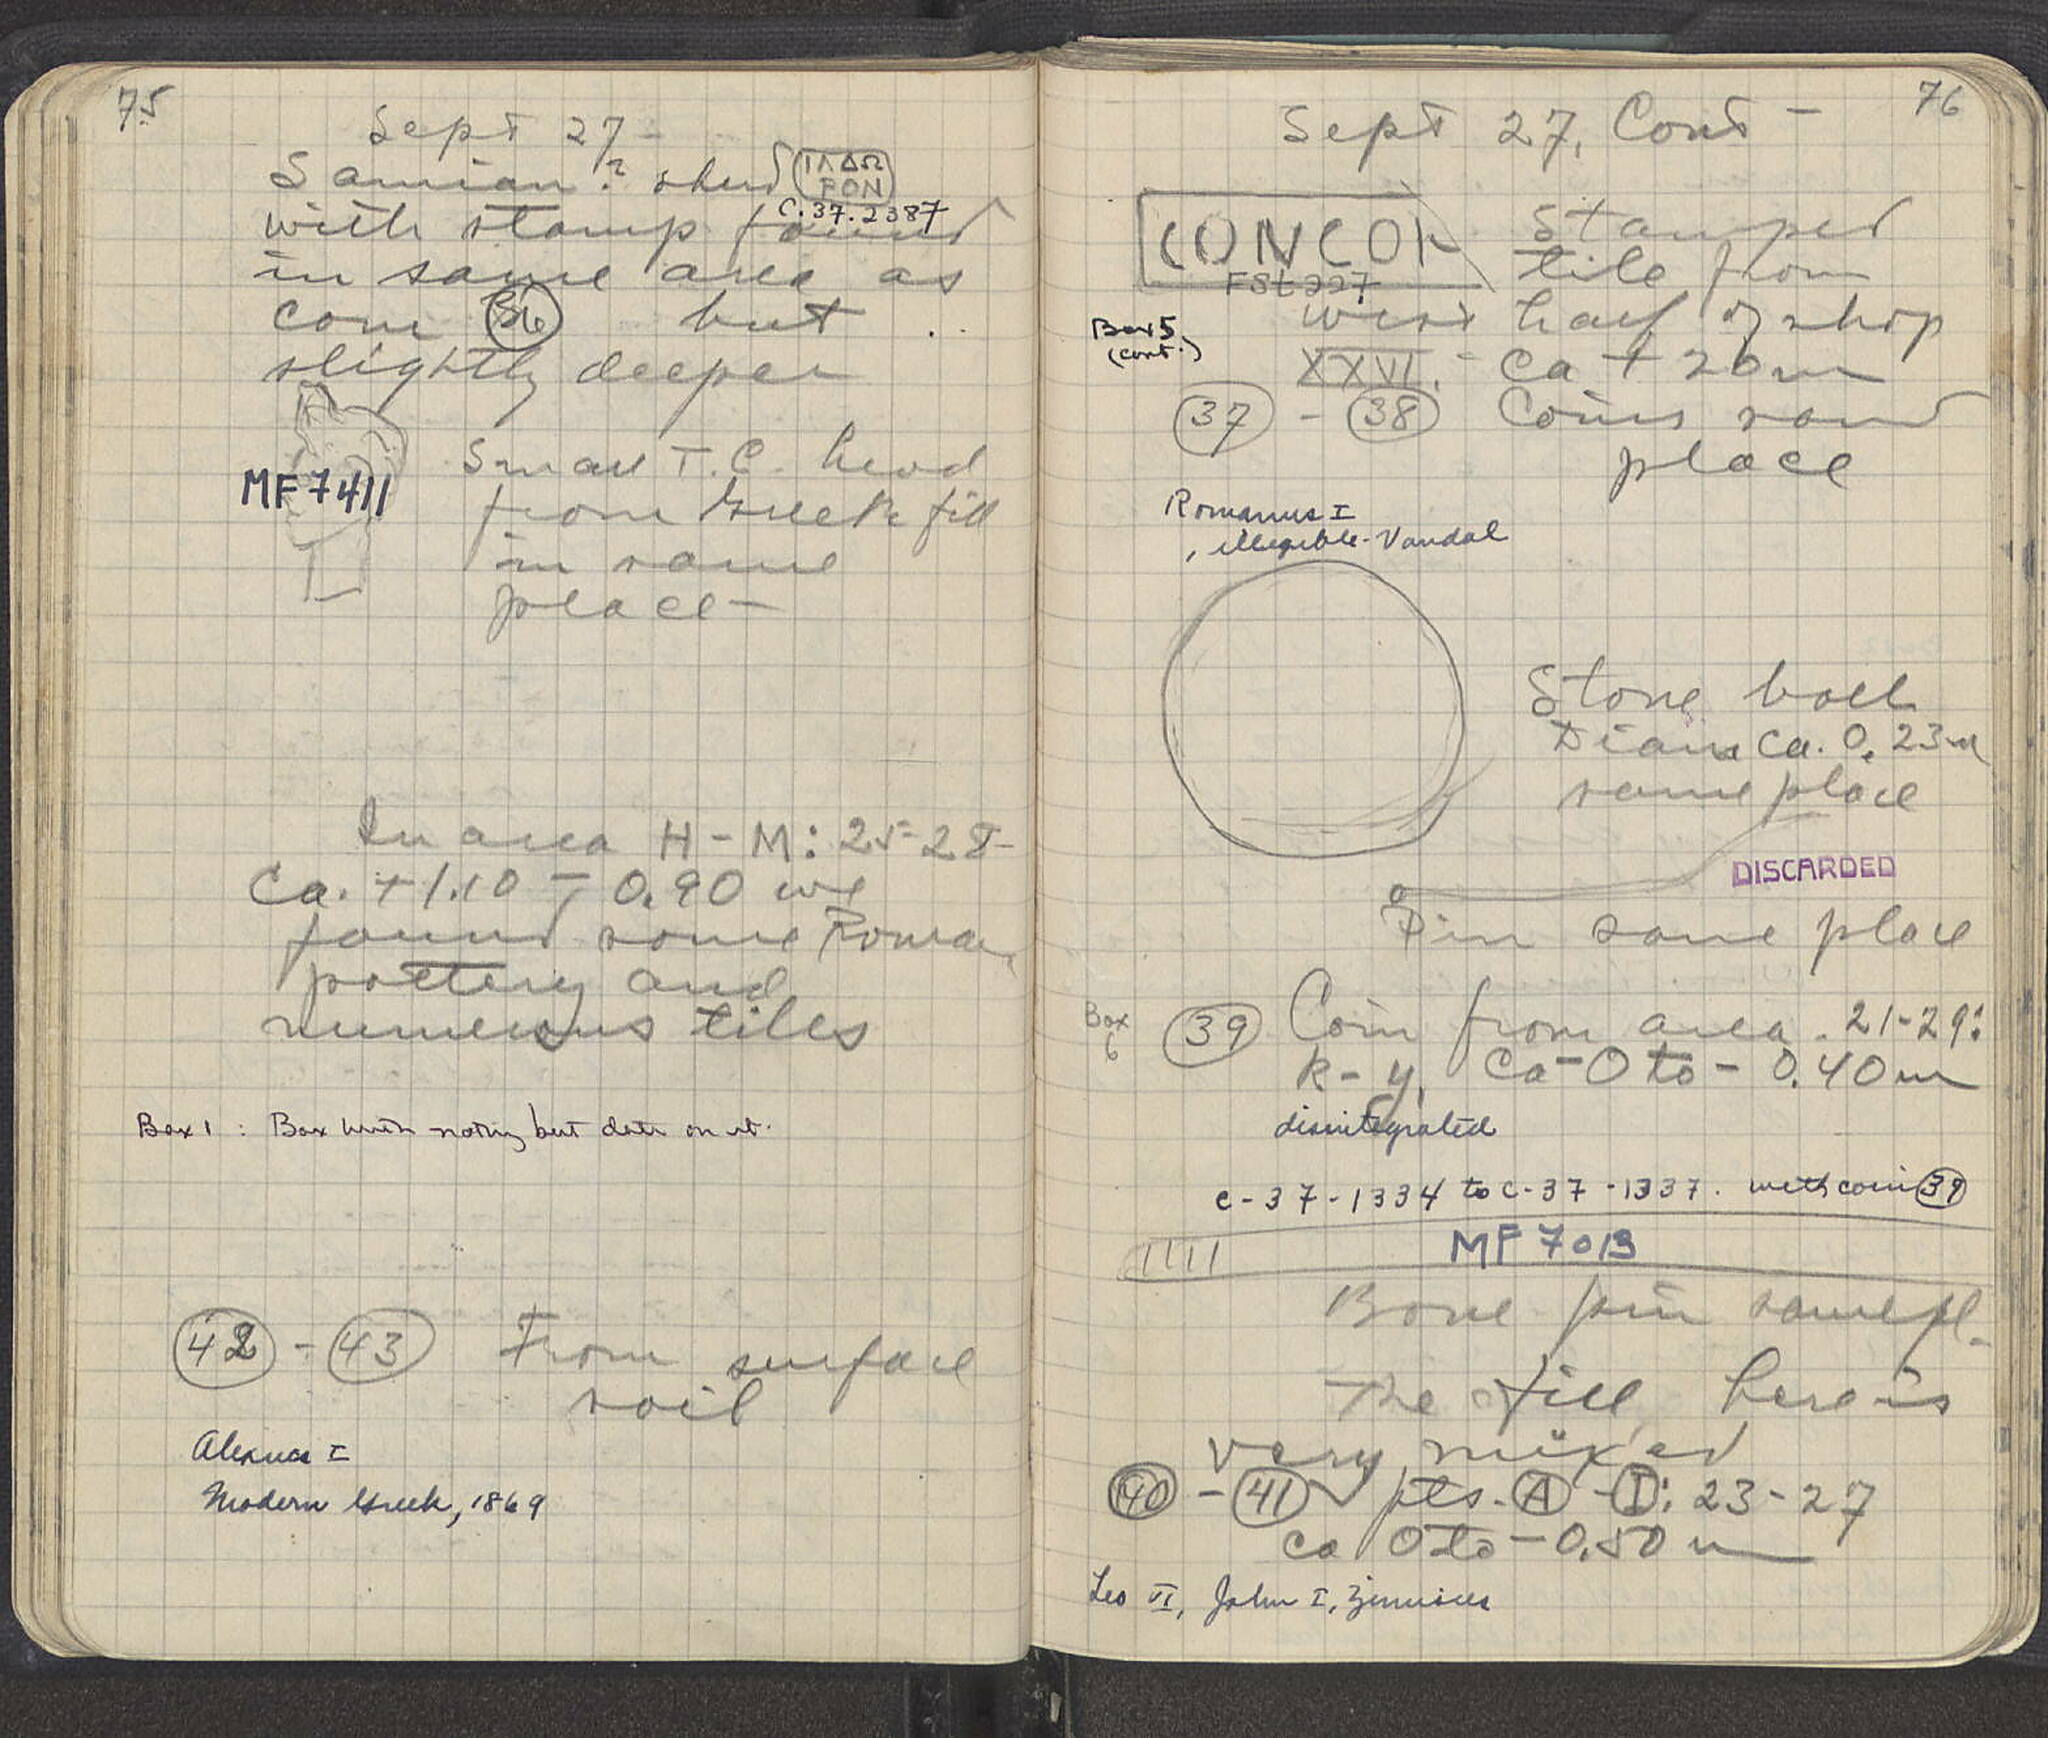 75
Sept 27 -
Samian? sherd ΙΛΔΩ
ΡΟΝ
C.37.2387
with stamp found
in same area as
coin 36 but
slightly deeper
MF 7411
Small T.C. head
from Greek fill
in same
place -
In area H - M: 25-28 -
Ca. +1.10 - 0.90 we
found some Roman
pottery and
numerous tiles
Box 1 : Box with nothing but date on it.
42 - 43 From surface
soil
Alexius I
Modern Greek, 1869
76
Sept 27, Cont -
CONCOR Stamped
FSt 227 tile from
west half of shop
Box 5
(cont.)
XXVI. - Ca + 20 m
37 - 38 Coins same
place
Romanus I
, illegible - Vandal
Stone ball
Diam ca. 0.23 m
same place
DISCARDED
Pin same place
Box
6
39 Coin from area 21-29:
K - y, Ca - 0 to - 0.40 m
disintegrated
C-37-1334 to C-37-1337. with coin 39
MF 7013
Bone pin same pl.
The fill here is
very mixed
40 - 41 pts. A - I: 23-27
ca 0 to - 0.50 m
Leo VI, John I, Zimisces